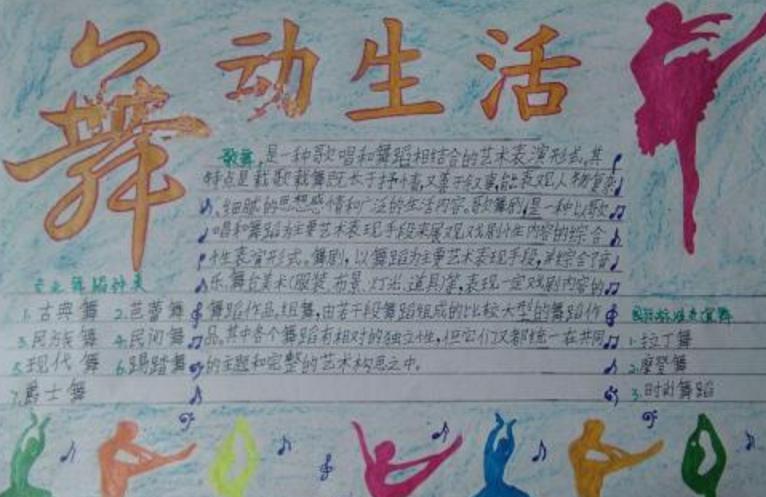 舞动生活
歌舞,是一种歌唱和舞蹈相结合的艺术表演形式。其
特点是载歌载舞既长于抒情,又善于叙事,能表现人物复杂
、细腻的思想感情和广泛的生活内容。歌舞剧,是一种以歌
唱和舞蹈为主要艺术表现手段来展现戏剧性内容的综合
性表演形式。舞剧,以舞蹈为主要艺术表现手段,并综合了音
乐、舞台美术(服装、布景、灯光、道具)等,表现一定戏剧内容的
舞蹈作品。组舞,由若干段舞蹈组成的比较大型的舞蹈作
品。其中各个舞蹈有相对的独立性,但它们又都统一在共同
的主题和完整的艺术构思之中。
专业舞蹈种类
1.古典舞 2.芭蕾舞
3.民族舞 4.民间舞
5.现代舞 6.踢踏舞
7.爵士舞
国际标准交谊舞
1.拉丁舞
2.摩登舞
3.时尚舞蹈